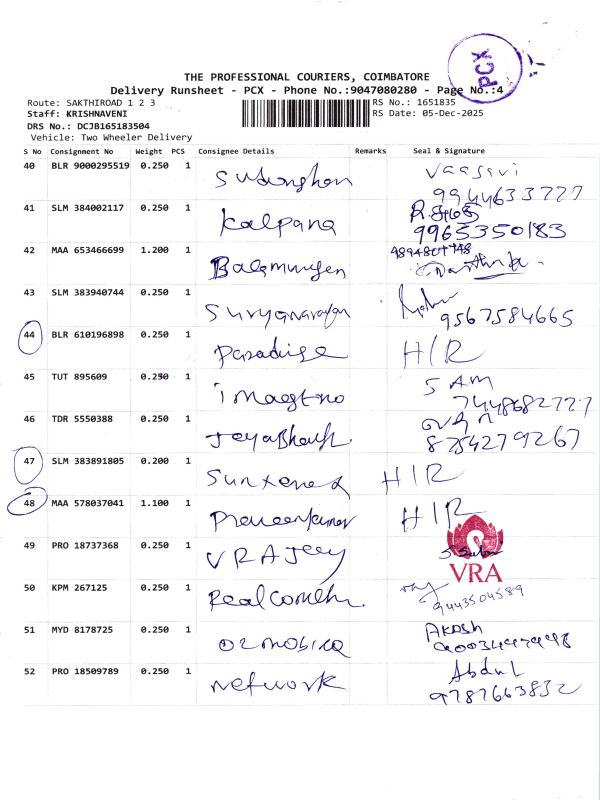 PCX
THE PROFESSIONAL COURIERS, COIMBATORE
Delivery Runsheet - PCX - Phone No.:9047080280 - Page No.:4
Route: SAKTHIROAD 1 2 3 RS No.: 1651835
Staff: KRISHNAVENI RS Date: 05-Dec-2025
DRS No.: DCJB165183504
Vehicle: Two Wheeler Delivery
S No Consignment No Weight PCS Consignee Details Remarks Seal & Signature
40 BLR 9000295519 0.250 1 Vaasavi
9944633727
41 SLM 384002117 0.250 1 Kalpana
9965350183
42 MAA 653466699 1.200 1 Balamurugen
43 SLM 383940744 0.250 1 Suryanarayan
9567584665
44 BLR 610196898 0.250 1 Paradise H/R
45 TUT 895609 0.250 1 SAM
7448682727
46 TDR 5550388 0.250 1
8754279267
47 SLM 383891805 0.200 1 H/R
48 MAA 578037041 1.100 1 Praveenkumar H/R
49 PRO 18737368 0.250 1 VRA Jeey
VRA
50 KPM 267125 0.250 1
9443504589
51 MYD 8178725 0.250 1 Akash
52 PRO 18509789 0.250 1 network Abdul
9787663832